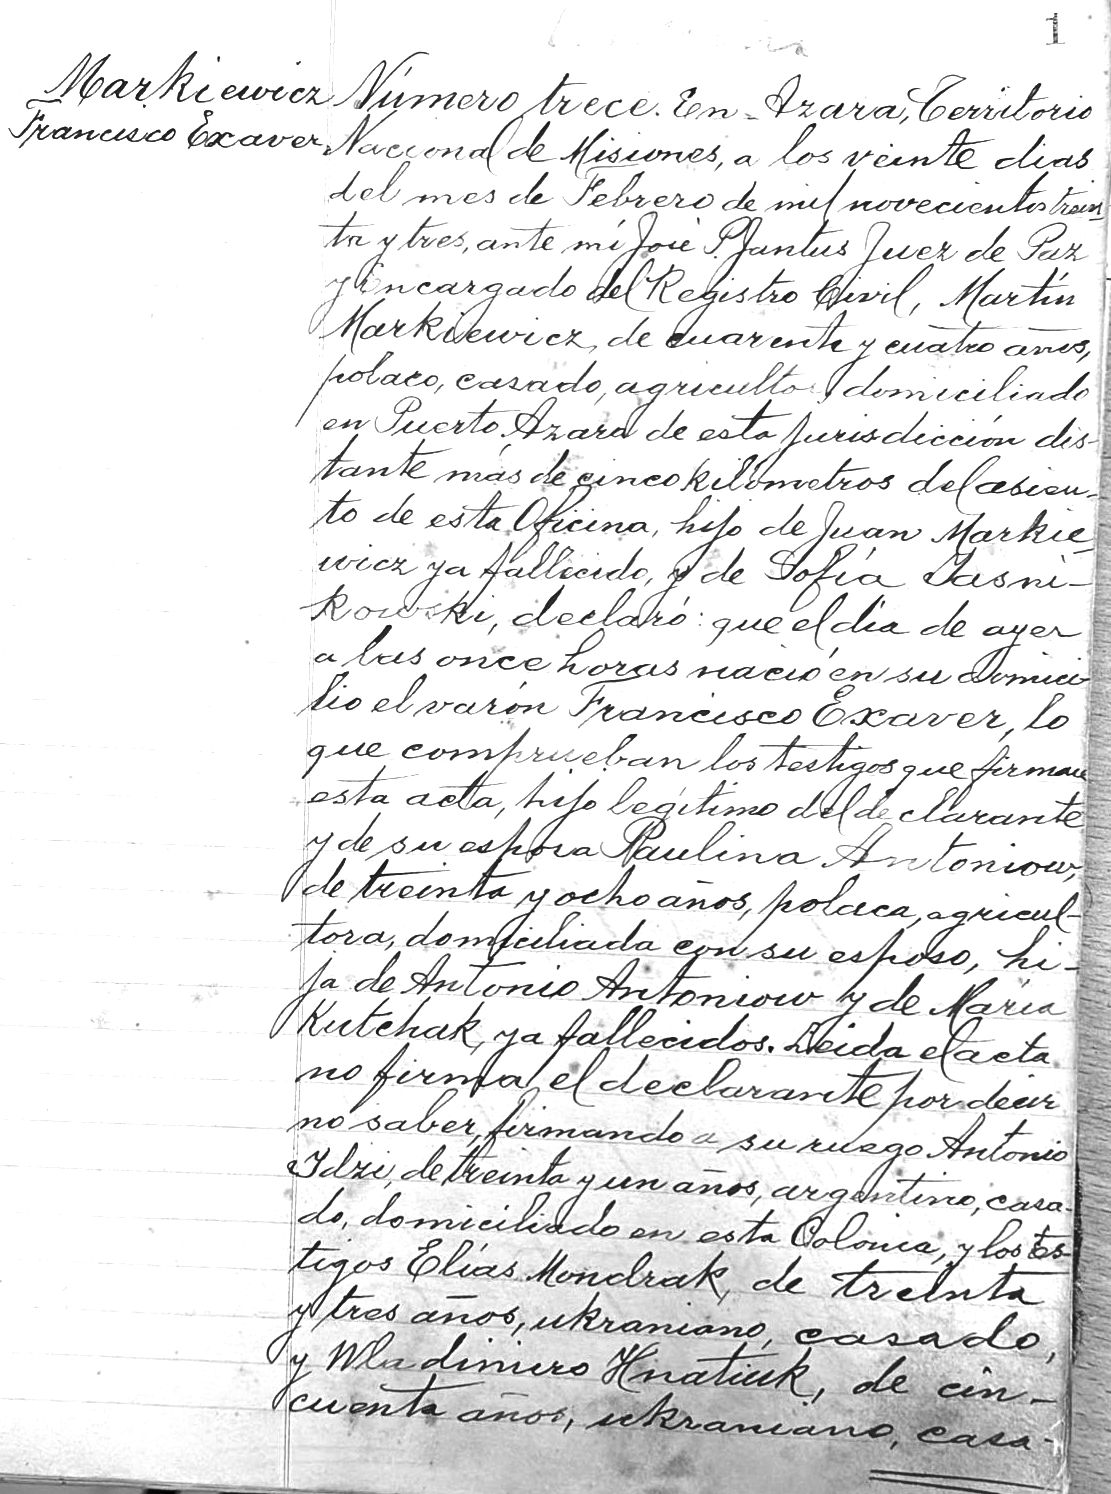 1
Markiewicz
Francisco Exaver
Número trece. En Azara, Territorio
Nacional de Misiones, a los veinte dias
del mes de Febrero de mil novecientos trein
ta y tres, ante mí José P. Jantus Juez de Paz
y Encargado del Registro Civil, Martín
Markiewicz, de cuarenta y cuatro años,
polaco, casado, agricultor, domiciliado
en Puerto Azara de esta jurisdicción dis-
tante más de cinco kilómetros del asien-
to de esta Oficina, hijo de Juan Markie-
wicz ya fallecido, y de Sofía Jasni-
kowski, declaró: que el día de ayer
a las once horas nació en su domici
lio el varón Francisco Exaver, lo
que comprueban los testigos que firman
esta acta, hijo legítimo del declarante
y de su esposa Paulina Antoniow,
de treinta y ocho años, polaca, agricul-
tora, domiciliada con su esposo, hi-
ja de Antonio Antoniow y de María
Kutchak, ya fallecidos. Leida el acta
no firma el declarante por decir
no saber, firmando a su ruego Antonio
Idzi, de treinta y un años, argentino, casa-
do, domiciliado en esta Colonia, y los tes-
tigos Elías Mondrak, de treinta
y tres años, ukraniano, casado,
y Wladimiro Hnatiuk, de cin-
cuenta años, ukraniano, casa-